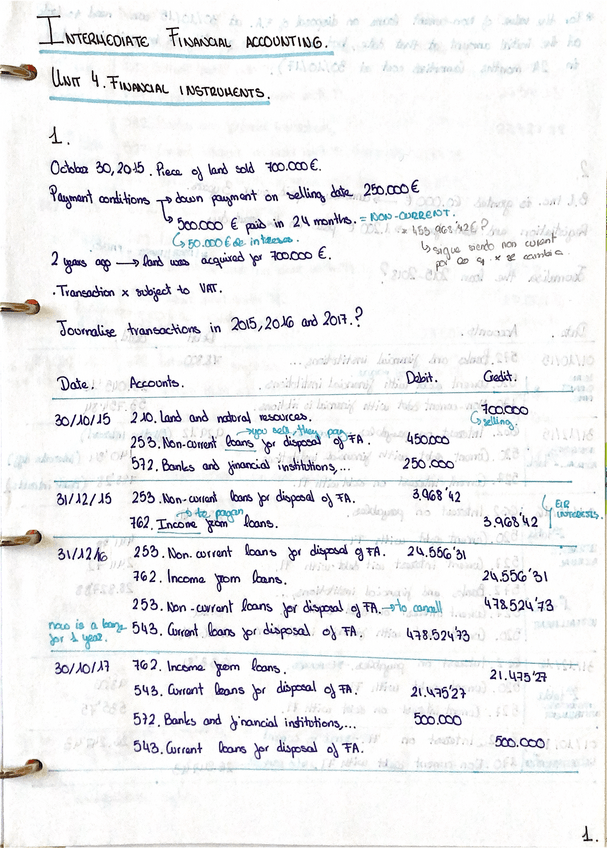 INTERMEDIATE FINANCIAL ACCOUNTING.
UNIT 4. FINANCIAL INSTRUMENTS.
1.
October 30, 2015. Piece of land sold 700.000 €.
Payment conditions → down payment on selling date 250.000 €
↳ 500.000 € paid in 24 months. = NON-CURRENT.
↳ 50.000 € de intereses.
= 453.968'42 €?
↳ sigue siendo non current
2 years ago → land was acquired for 700.000 €.
· Transaction x subject to VAT.
Journalise transactions in 2015, 2016 and 2017.?
Date. Accounts. Debit. Credit.
30/10/15 210. Land and natural resources. 700.000
↳ selling.
→ you sell, they pay
253. Non-current loans for disposal of FA. 450.000
572. Banks and financial institutions,... 250.000
31/12/15 253. Non-current loans for disposal of FA. 3.968'42
→ te pagan
762. Income from loans. 3.968'42
↳ EIR INTERESTS.
31/12/16 253. Non-current loans for disposal of FA. 24.556'31
762. Income from loans. 24.556'31
253. Non-current loans for disposal of FA. → to cancel 478.524'73
now is a loan for 1 year. 543. Current loans for disposal of FA. 478.524'73
30/10/17 762. Income from loans. 21.475'27
543. Current loans for disposal of FA. 21.475'27
572. Banks and financial institutions,... 500.000
543. Current loans for disposal of FA. 500.000
1.